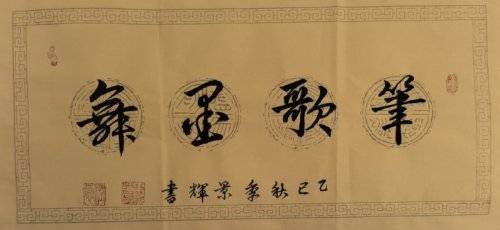 筆歌墨舞
乙巳秋季景輝書